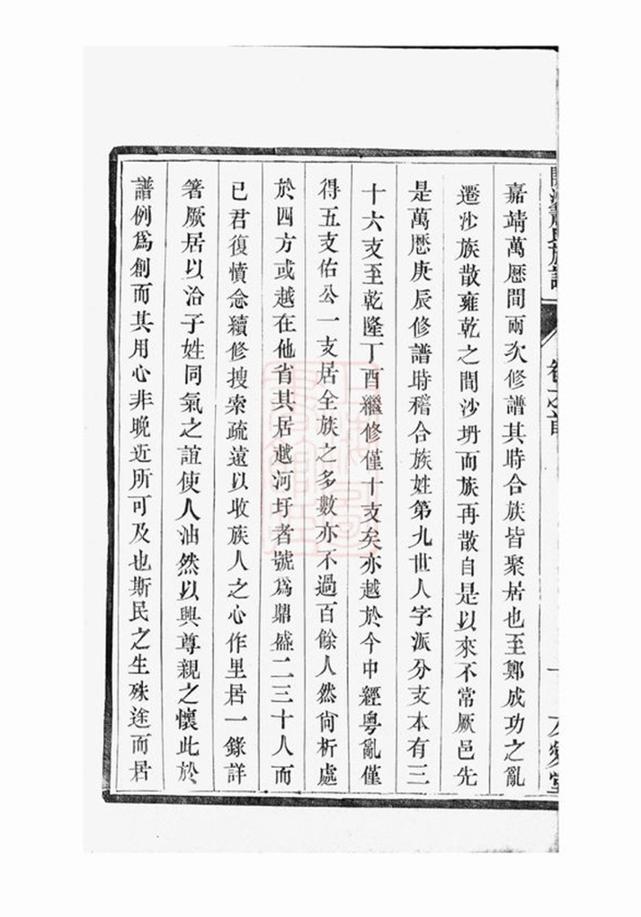 嘉靖萬厯間兩次修譜其時合族皆聚居也至鄭成功之亂
遷沙族散雍乾之間沙坍而族再散自是以來不常厥邑先
是萬厯庚辰修譜時稽合族姓第九世人字派分支本有三
十六支至乾隆丁酉繼修僅十支矣亦越於今中經粵亂僅
得五支佑公一支居全族之多數亦不過百餘人然尙析處
於四方或越在他省其居越河圩者號爲鼎盛二三十人而
已君復憤念續修搜索疏遠以收族人之心作里居一錄詳
箸厥居以洽子姓同氣之誼使人油然以興尊親之懷此於
譜例爲創而其用心非晚近所可及也斯民之生殊途而居